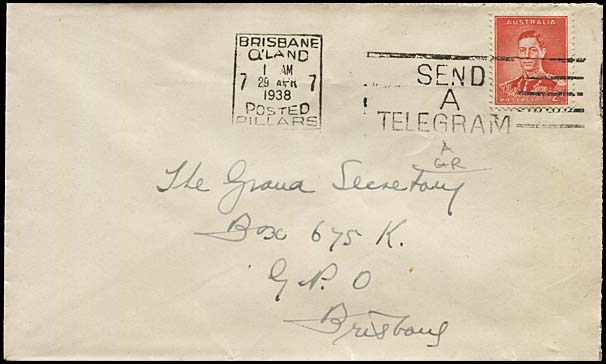 BRISBANE
Q'LAND
1 AM
7 29 APR 7
1938
POSTED
PILLARS
SEND
A
TELEGRAM
AUSTRALIA
POSTAGE
The Grand Secretary
Box 675 K.
G.P.O
Brisbane